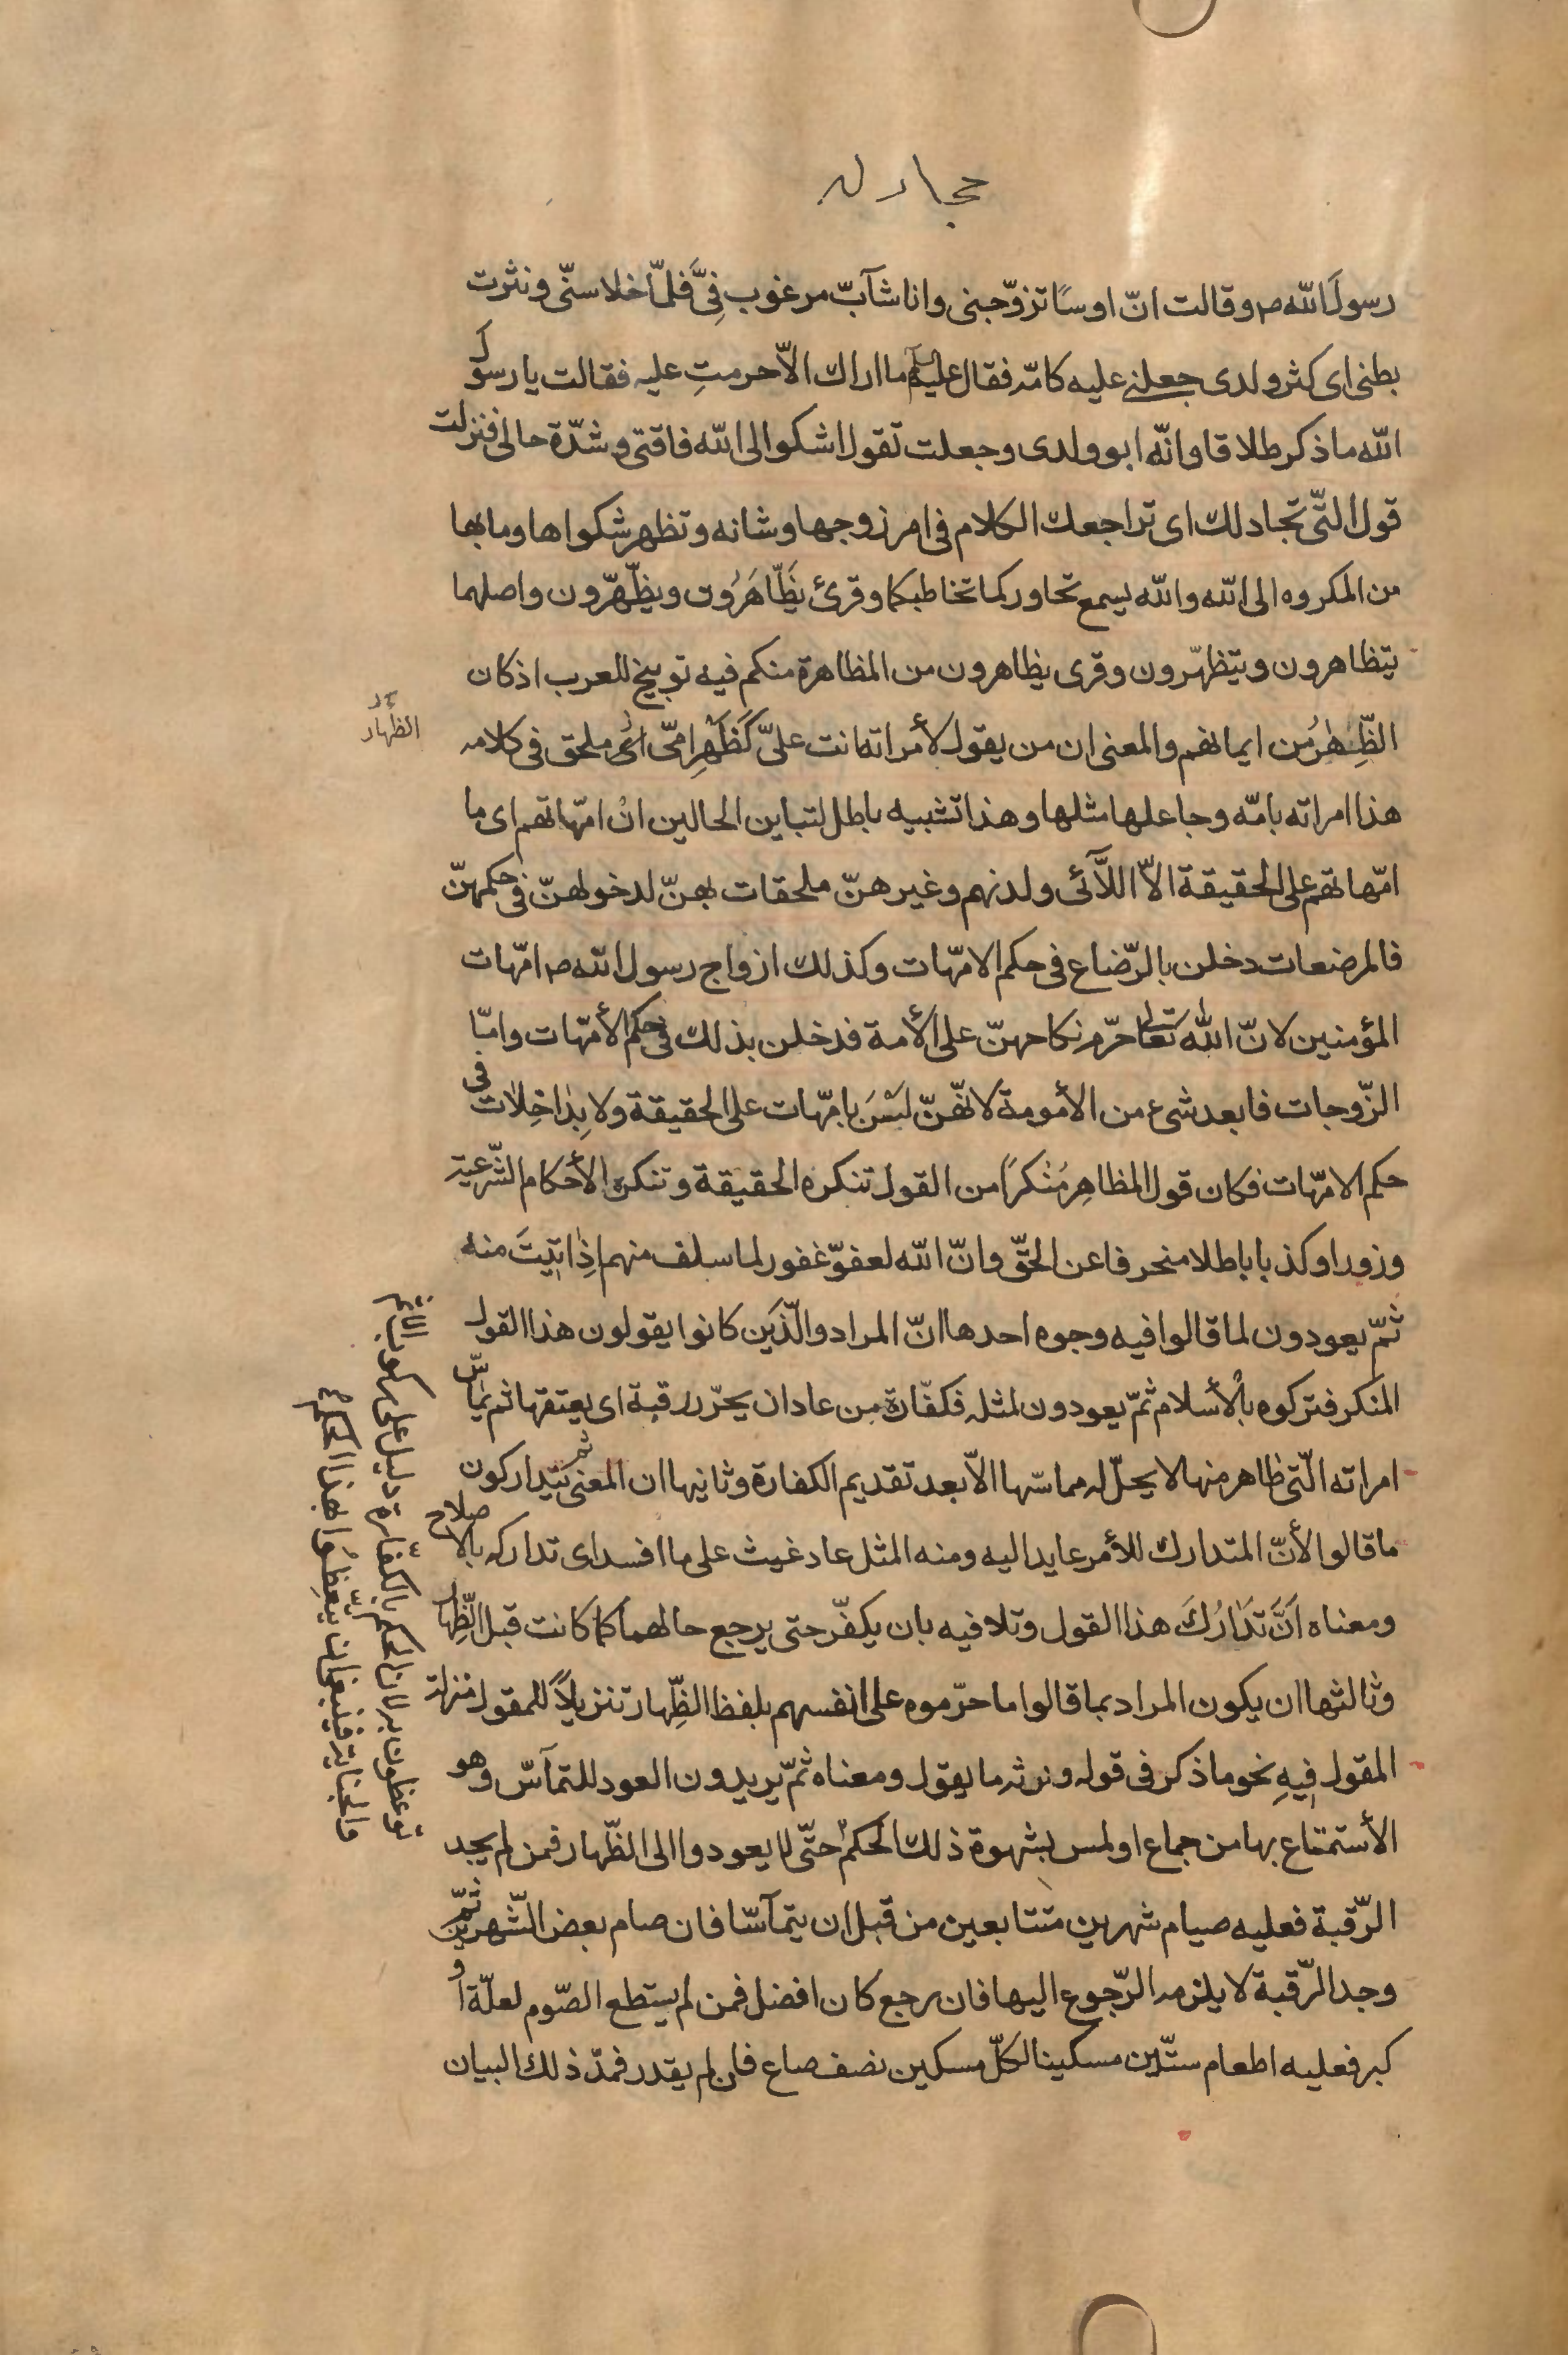 مجادله
رسولَ الله ص وقالت انّ اوسًا تزوّجبنى وانا شآبّ مرغوب فِىَّ فلمّا خلا سنّى ونثرت
بطنى اى كثر ولدى جعلنى عليه كامّه فقال عليه السلم ما اراك الاّ حرمتِ عليه فقالت يا رسول
الله ما ذكر طلاقا وانّه ابو ولدى وجعلت تقول اشكوا الى الله فاقتى وشدّة حالى فنزلت
قول الّتى تجادلك اى تراجعك الكلام فى امر زوجها وشانه وتظهر شكواها وما بها
من المكروه الى الله والله يسمع تحاوركما تخاطبكما وقرئ يَظّاهَرُون ويظّهّرون واصلهما
يتظاهرون ويتظهّرون وقرى يظاهرون من المظاهرة منكم فيه توبيخ للعرب اذ كان
الظِّهٰرُ من ايمانهم والمعنى ان من يقول لأمراته انت علىّ كَظَهْرِ امّى اى ملحق فى كلامه
الظهار
هذا امراته بامّه وجاعلها مثلها وهذا تشبيه باطل لتباين الحالين انْ امّهاتهم اى ما
امّهاتهم على الحقيقة الاّ اللاَّئى ولدنهم وغيرهنّ ملحقات بهنّ لدخولهنّ فى حكمهنّ
فالمرضعات دخلن بالرّضاع فى حكم الامّهات وكذلك ازواج رسول الله ص امّهات
المؤمنين لانّ الله تعالى حرّم نكاحهنّ على الأمة فدخلن بذلك فى حكم الأمّهات وامّا
الزّوجات فابعد شىء من الأمومة لانّهنّ لَسْنَ بامّهات على الحقيقة ولا بِدٰاخِلاٰت فى
حكم الامّهات فكان قول المظاهِر مُنْكَراً من القول تنكره الحقيقة وتنكره الأحكام الشّرعيّة
وزورا وكذبا باطلا منحرفا عن الحقّ وانّ الله لعفوّ غفور لما سلف منهم اذٰا تيبَ منه
ثمّ يعودون لما قالوا فيه وجوه احدها انّ المراد والّذين كانوا يقولون هذا القول
المنكر فتركوه بالأسلام ثمّ يعودون لمثله فكفّارة من عاد ان يحرّر رقبة اى يعتقها ثم يماسّ
امراته الّتى ظاهر منها لا يحلّ له مماسّها الاّ بعد تقديم الكفارة وثانيها ان المعنى ثم يتداركون
ما قالوا لأنّ المتدارك للأمر عايد اليه ومنه المثل عاد غيث على ما افسد اى تداركه بالاصلاح
ومعناه اَنَّ تَدٰارُكَ هذا القول وتلافيه بان يكفّر حتى يرجع حالهما كما كانت قبل الظِّهار
وثالثها ان يكون المراد بما قالوا ما حرّموه على انفسهم بلفظ الظِّهار تنزيلاً للمقول منزلة
المقول فيهِ نحو ما ذكر فى قوله ونرثه ما يقول ومعناه ثمّ يريدون العود للتمآسّ وهو
الأستمتاع بها من جماع او لمس بشهوة ذلك الحكم
توعظون به لان الحكم بالكفّارة دليل على ركوب
الجناية فينبغى ان يتّعظوا بهذا الحكم
حتّى لا يعودوا الى الظّهار فمن لم يجد
الرّقبة فعليه صيام شهرين متتابعين من قبل ان يتمآسّا فان صام بعض الشّهرين ثمّ
وجد الرّقبة لا يلزمه الرّجوع اليها فان رجع كان افضل فمن لم يستطع الصّوم لعلّة او
كبر فعليه اطعام ستّين مسكينا لكلّ مسكين نصف صاع فان لم يقدر فمدّ ذلك البيان